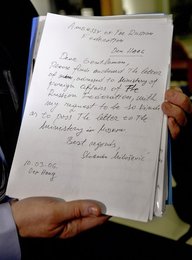 Ambassy of the Russian
Federation
Den Haag
Dear Gentlemen,
Please find enclosed the letters
of adressed to Ministery of
Foreign affairs of the
Russian Federation, with
my request to be so kind
as to pass the letter to the
Ministery in Moscow
Best regards,
Slobodan Milošević
10.03.06.
Den Haag